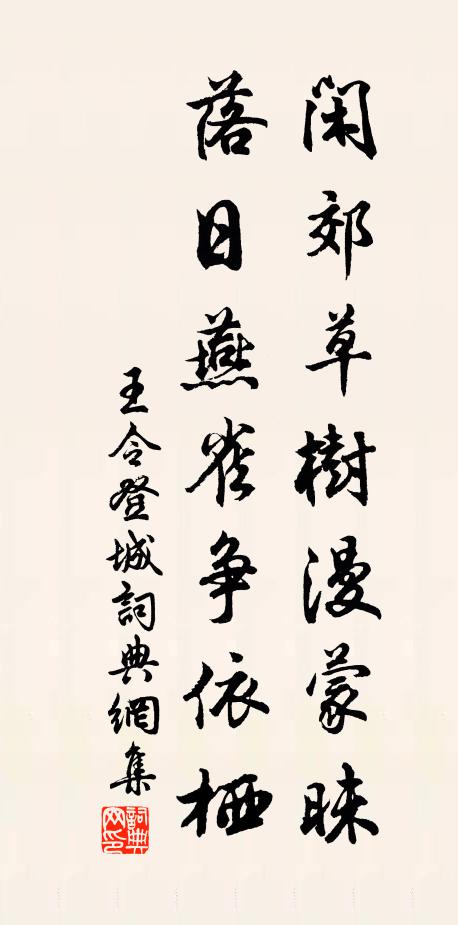 閑郊草樹漫蒙昧
落日燕雀争依栖
王令登城詞典網集
詞典網印